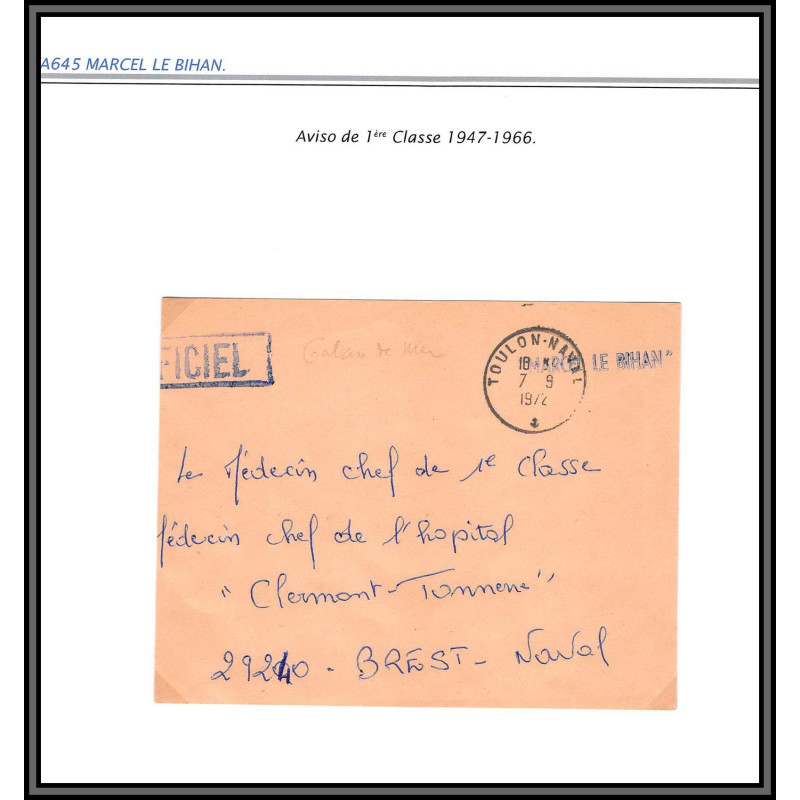 A645 MARCEL LE BIHAN.
Aviso de 1ère Classe 1947-1966.
FICIEL
de Mer
TOULON-NAVAL
18 H
7 9
1972
"MARCEL LE BIHAN"
Le Médecin chef de 1e Classe
Médecin chef de l'hopital
"Clermont-Tonnerre"
29240 - BREST - Naval